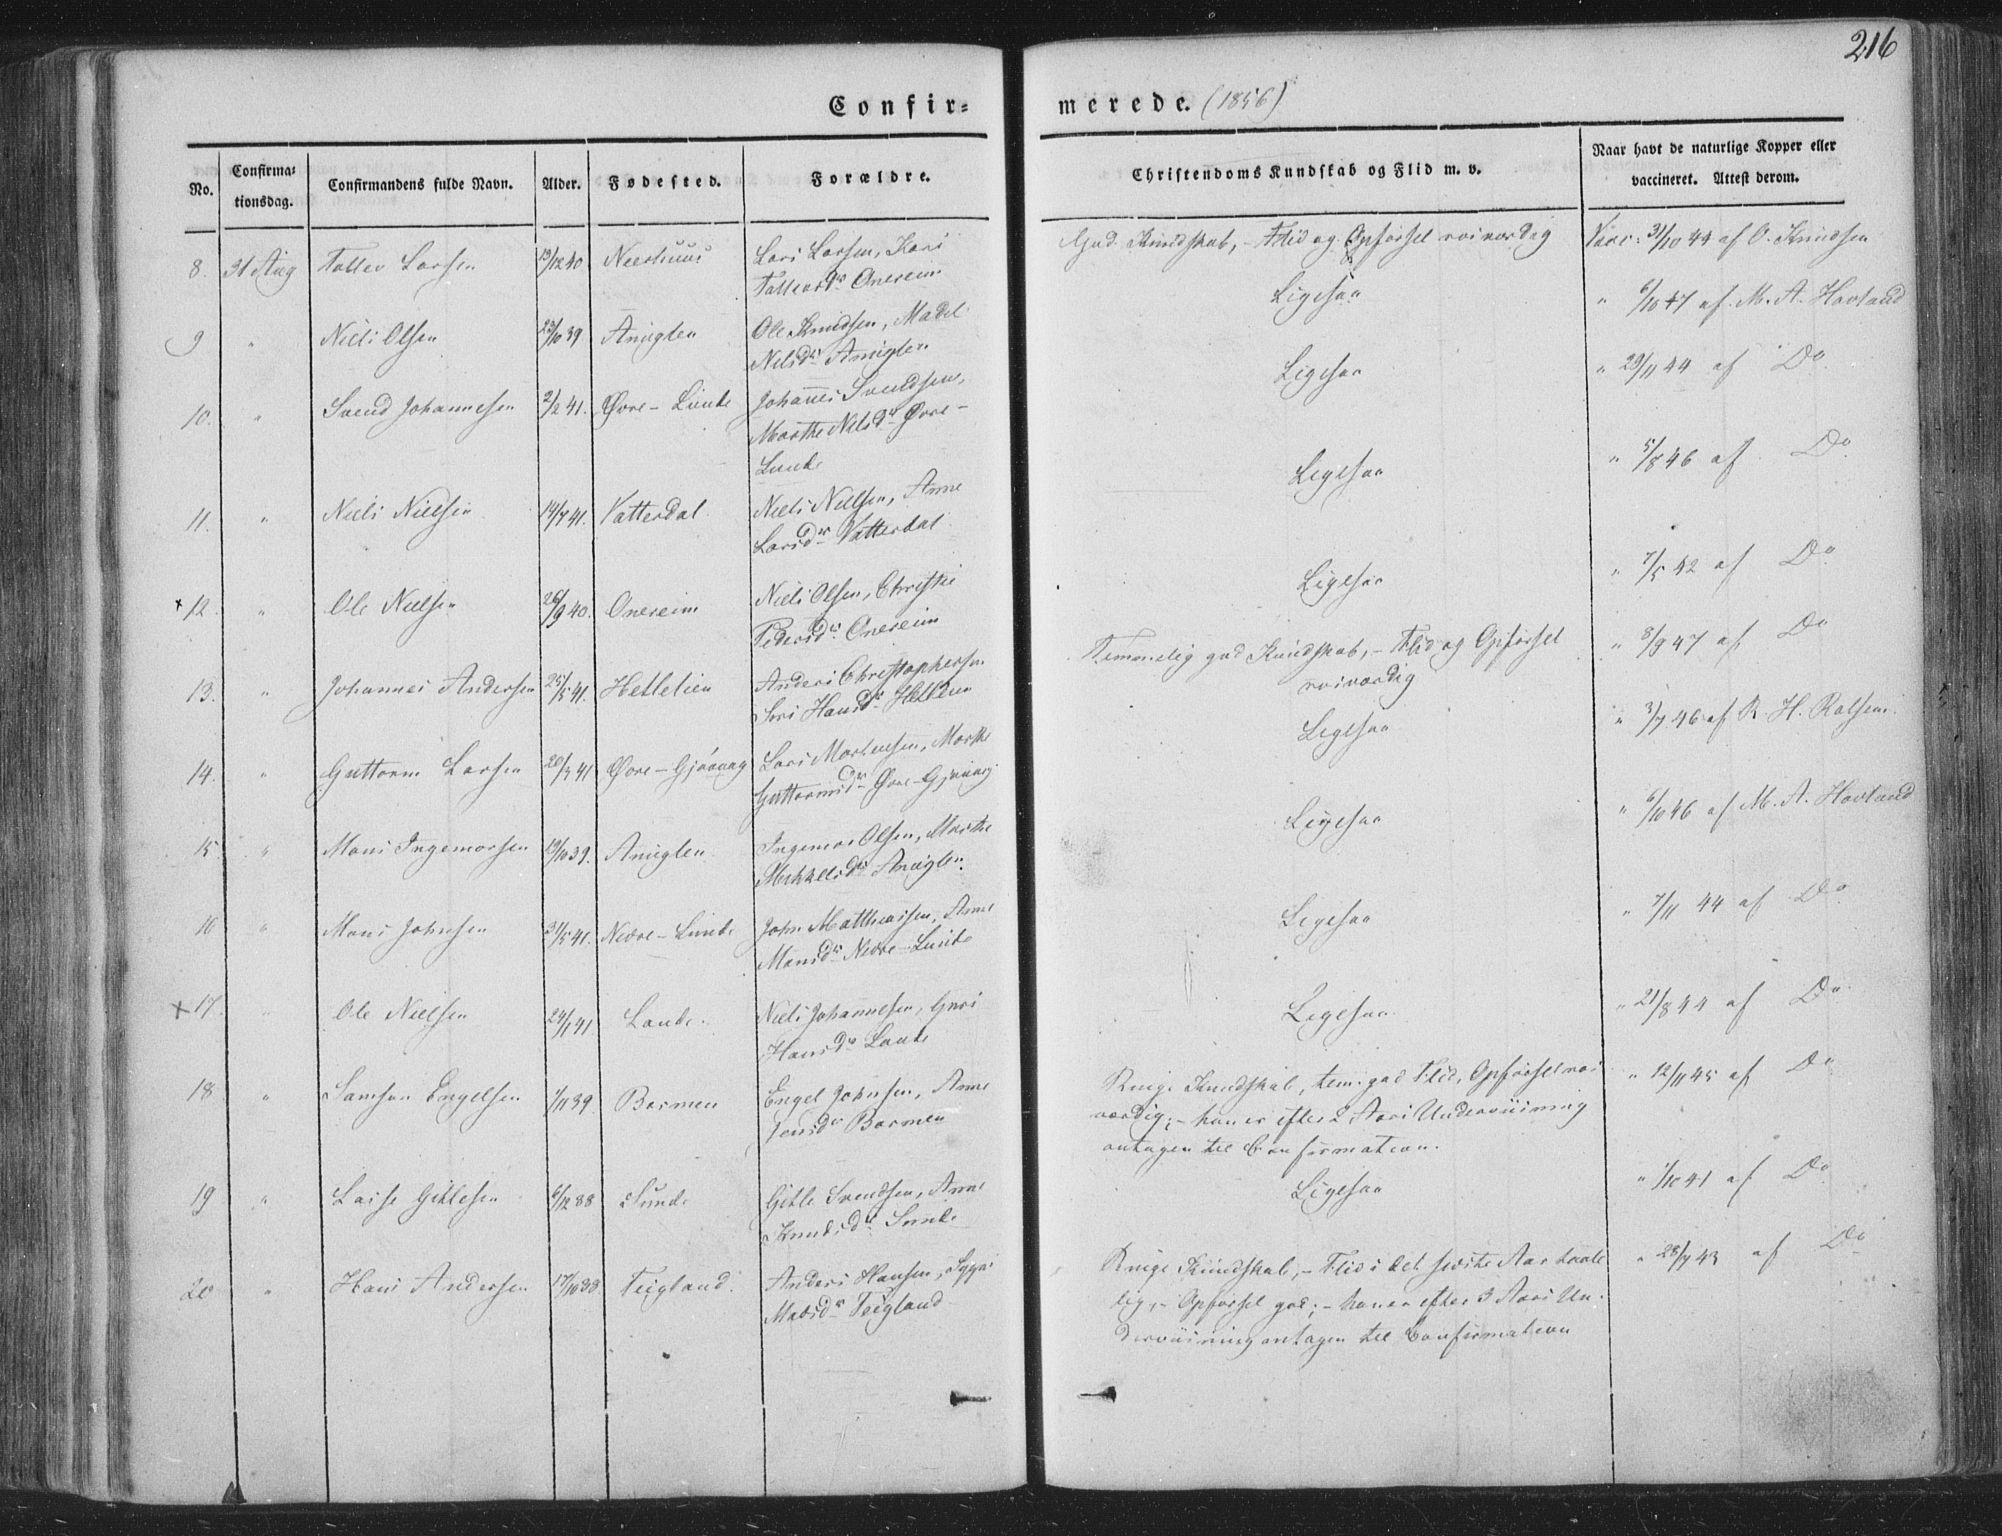 216
Confir=
merede. (1856)
No.
Confirma=
tionsdag.
Confirmandens fulde Navn.
Alder.
Fødested.
Forældre.
Christendoms Kundskab og Flid m. v.
Naar havt de naturlige Kopper eller
vaccineret. Attest derom.
8. 31 Aug Tollev Larsen 13/12 40 Neerhuus Lars Larsen, Kari
Tollevsdr Onereim
God Kundskab, - Flid og Opførsel roisværdig Vacc: 31/10 44 af O. Knudsen
9 " Niels Olsen 23/10 39 Anuglen Ole Knudsen, Madel
Nilsdr Anuglen
Ligesaa " 6/10 47 af M. A. Hovland
10. " Svend Johannesen 2/2 41. Øvre - Lunde Johannes Svendsen,
Marthe Nilsdr Øvre -
Lunde
Ligesaa " 29/11 44 af Do
11. " Niels Nielsen 14/7 41. Vatterdal Niels Nielsen, Anne
Larsdr Vatterdal
Ligesaa " 5/8 46 af Do
+ 12. " Ole Nielsen 26/9 40. Onereim Niels Olsen, Christi
Pedersdr Onereim
Ligesaa " 7/5 42 af Do
13. " Johannes Andersen 25/5 41. Hetletien Anders Christophersen
Hansdr
Temmelig god Kundskab, - Flid og Opførsel
roisværdig
" 8/9 47 af Do
14. " Guttorm Larsen 20/3 41 Øvre - Gjøvaag Lars Mortensen, Marthe
Guttormsdr Øvre - Gjøvaag
Ligesaa " 3/7 46 af R. H.
15 " Mons Ingemarsen 19/10 39. Anuglen Ingemar Olsen, Marthe
Mikkelsdr Anuglen.
Ligesaa " 6/10 46 af M. A. Hovland
16 " Mons Johnsen 31/5 41. Nedre - Lunde John Matthiassen, Anne
Monsdr Nedre - Lunde
Ligesaa " 7/11 44 af Do
+ 17. " Ole Nielsen 24/1 41 Lande. Niels Johannesen, Guri
Hansdr Lande
Ligesaa " 21/8 44 af Do
18 " Samson Engelsen 1/11 39 Barmen Engel Johnsen, Anne
Jonsdr Barmen
Ringe Kundskab, tem. god Flid, Opførsel rois-
værdig; - han er efter 2 Aars Underviisning
antagen til Confirmation.
" 12/11 45 af Do
19 " Lasse Gitlesen 6/12 38 Sunde Gitle Svendsen, Anne
Knudsdr Sunde
Ligesaa " 1/10 41 af Do
20 " Hans Andersen 17/10 38 Teigland Anders Hansen, Sygni
Madsdr Teigland
Ringe Kundskab, - Flid i det sidste Aar taale-
lig, - Opførsel god; - han er efter 3 Aars Un-
derviisning antagen til Confirmation
" 28/7 43 af Do